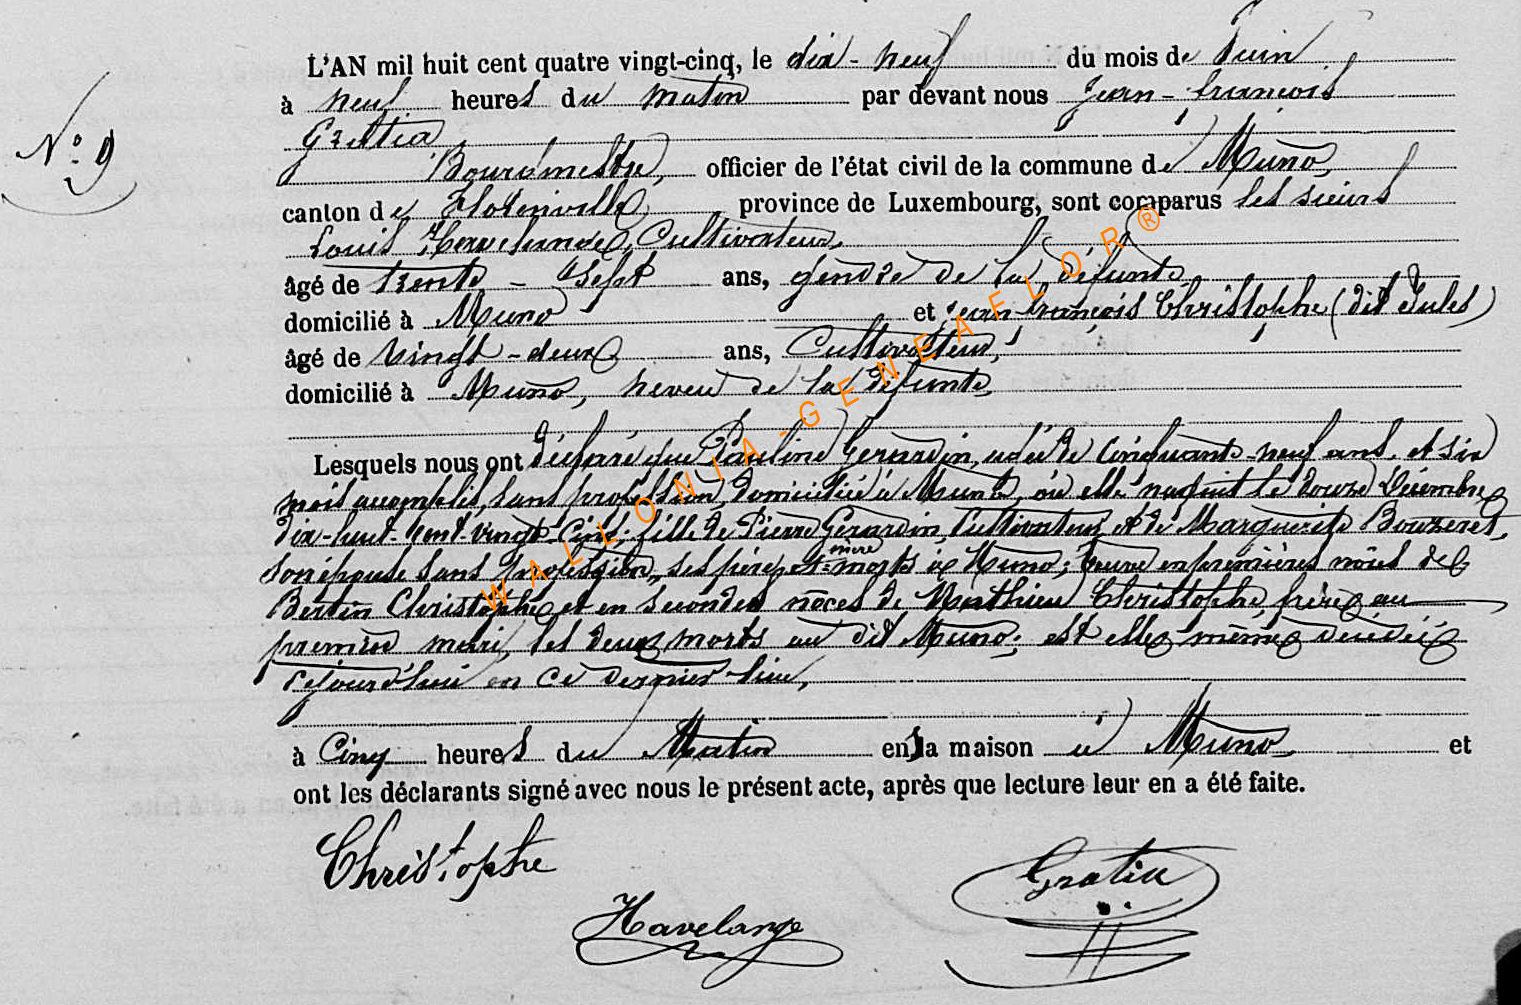 L'AN mil huit cent quatre vingt-cinq, le dix-neuf du mois de Juin
à neuf heures du matin par devant nous Jean-François
N° 9
Gratia
Bourgmestre, officier de l'état civil de la commune de Muno,
canton de Florenville, province de Luxembourg, sont comparus les sieurs
Louis Havelange, Cultivateur,
âgé de trente-sept ans, gendre de la défunte
domicilié à Muno et Jean-François Christophe (dit Jules)
âgé de vingt-deux ans, Cultivateur,
domicilié à Muno, neveu de la défunte,
Lesquels nous ont déclaré que Pauline Gérardin, agée de Cinquante-neuf ans et six
mois accomplis, sans profession, domiciliée à Muno, où elle naquit le douze Décembre
dix-huit-cent-vingt-Cinq, fille de Pierre Gérardin, Cultivateur et de Marguerite
son épouse sans profession, ses père et mère morts à Muno; Veuve en premières nôces de
Bertin Christophe et en secondes nôces de Mathieu Christophe, frère au
premier mari, les deux morts au dit Muno; est elle même décédée
cejourd'hui en ce dernier lieu,
à Cinq heures du Matin en sa maison à Muno et
ont les déclarants signé avec nous le présent acte, après que lecture leur en a été faite.
Christophe
Gratia
Havelange
WALLONIA-GENEAFLOR®